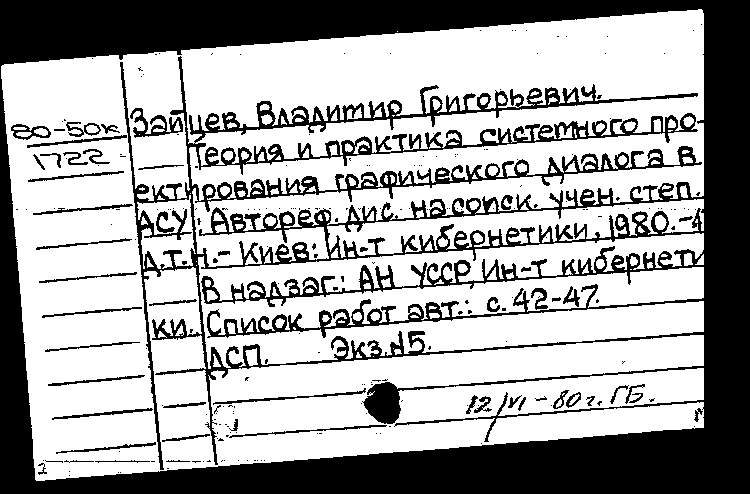 80-50к Зайцев, Владимир Григорьевич.
1722 Теория и практика системного про-
ектирования графического диалога в
АСУ: Автореф. дис. на соиск. учен. степ.
д.т.н. - Киев: Ин-т кибернетики, 1980. - 4
В надзаг.: АН УССР, Ин-т кибернети
ки. Список работ авт.: с. 42-47.
ДСП. Экз. №5.
12/VI - 80 г. ГБ.